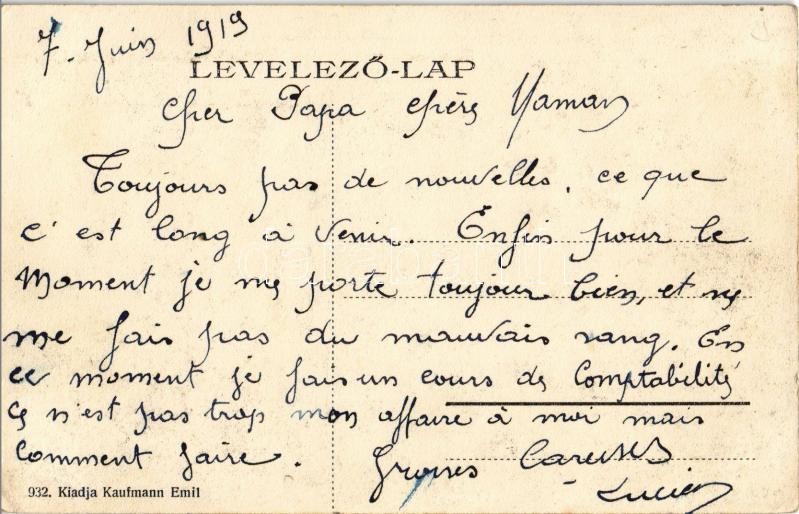 7. Juin 1919
LEVELEZŐ-LAP
Cher Papa chère Maman
Toujours pas de nouvelles, ce que
c'est long à venir. Enfin pour le
moment je me porte toujour bien, et ne
me fais pas du mauvais sang. En
ce moment je fais un cours de Comptabilité
Ce n'est pas trop mon affaire à moi mais
comment faire. Grosses Caresses
Lucien
932. Kiadja Kaufmann Emil